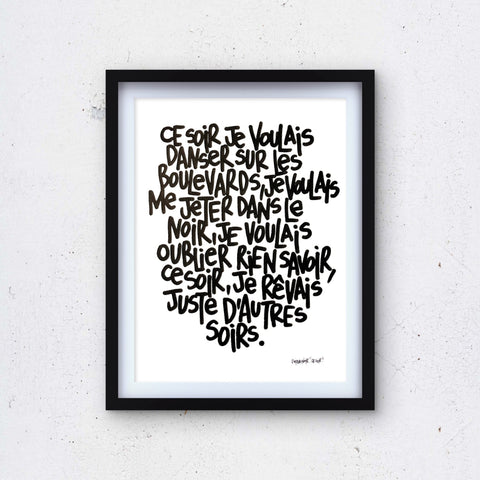 CE SOIR JE VOULAIS
DANSER SUR LES
BOULEVARDS, JE VOULAIS
ME JETER DANS LE
NOIR, JE VOULAIS
OUBLIER RIEN SAVOIR,
CE SOIR, JE RÊVAIS
JUSTE D'AUTRES
SOIRS.